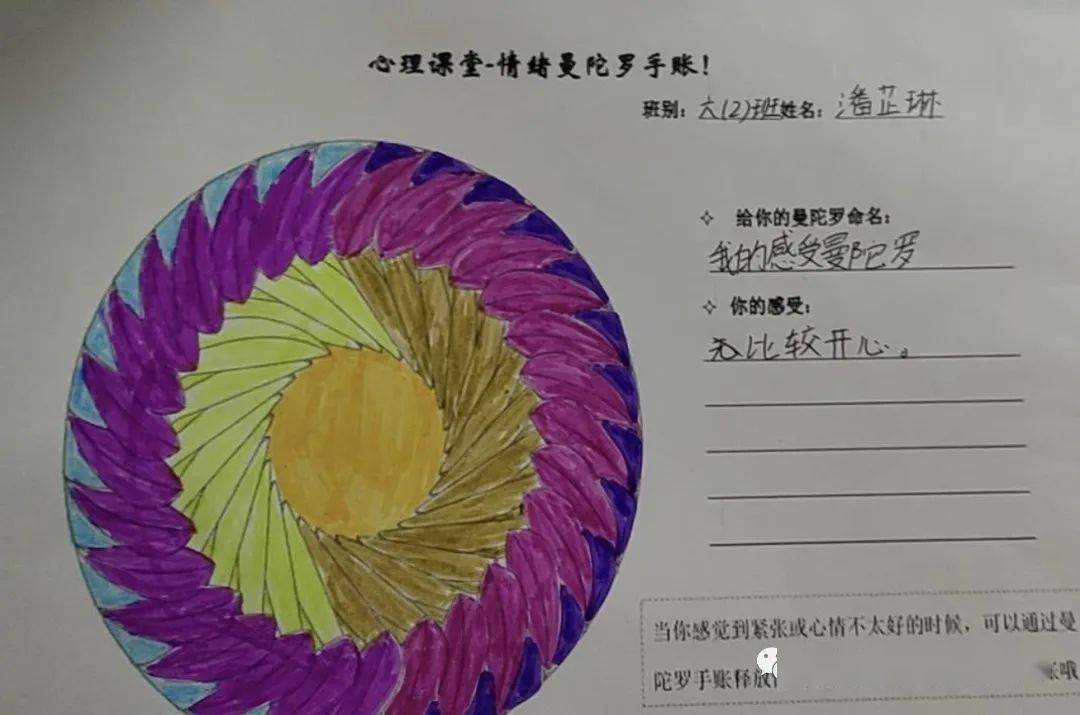 心理课堂-情绪曼陀罗手账!
班别: 六(2)班姓名: 潘芷琳
✧ 给你的曼陀罗命名:
我的感受曼陀罗
✧ 你的感受:
无比较开心。
当你感觉到紧张或心情不太好的时候，可以通过曼
陀罗手账释放
哦